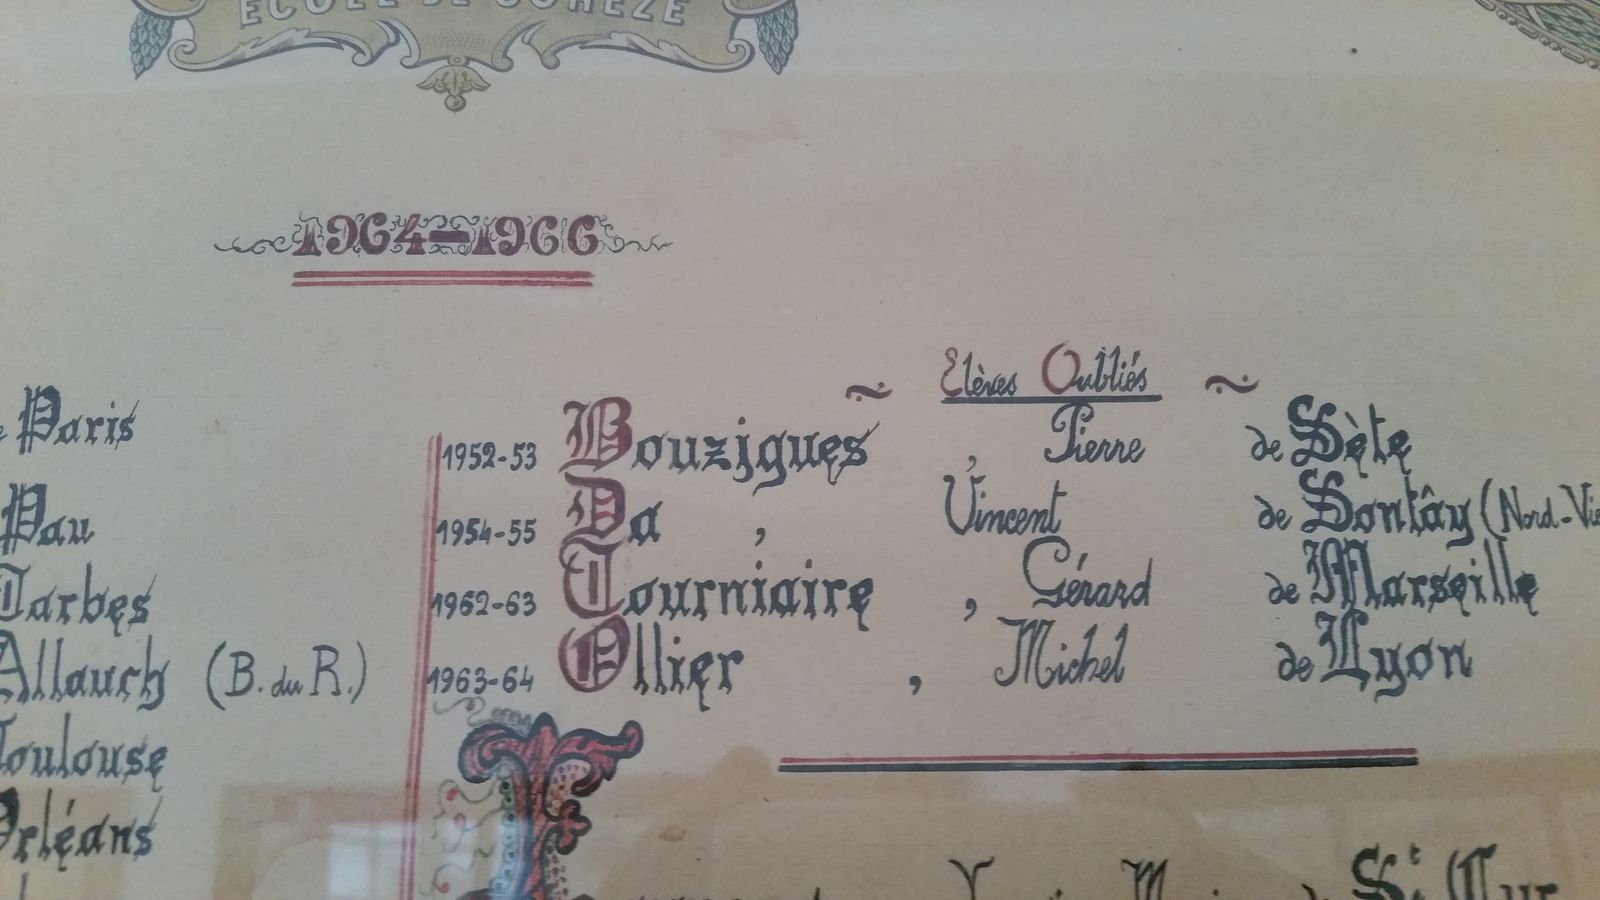 ECOLE DE SORÈZE
1964-1966
Paris
Pau
Tarbes
Allauch (B. du R.)
Toulouse
Orléans
~ Elèves Oubliés ~
1952-53 Bouzigues , Pierre de Sète
1954-55 Da , Vincent de Sontây (Nord-Vie
1962-63 Tourniaire , Gérard de Marseille
1963-64 Ollier , Michel de Lyon